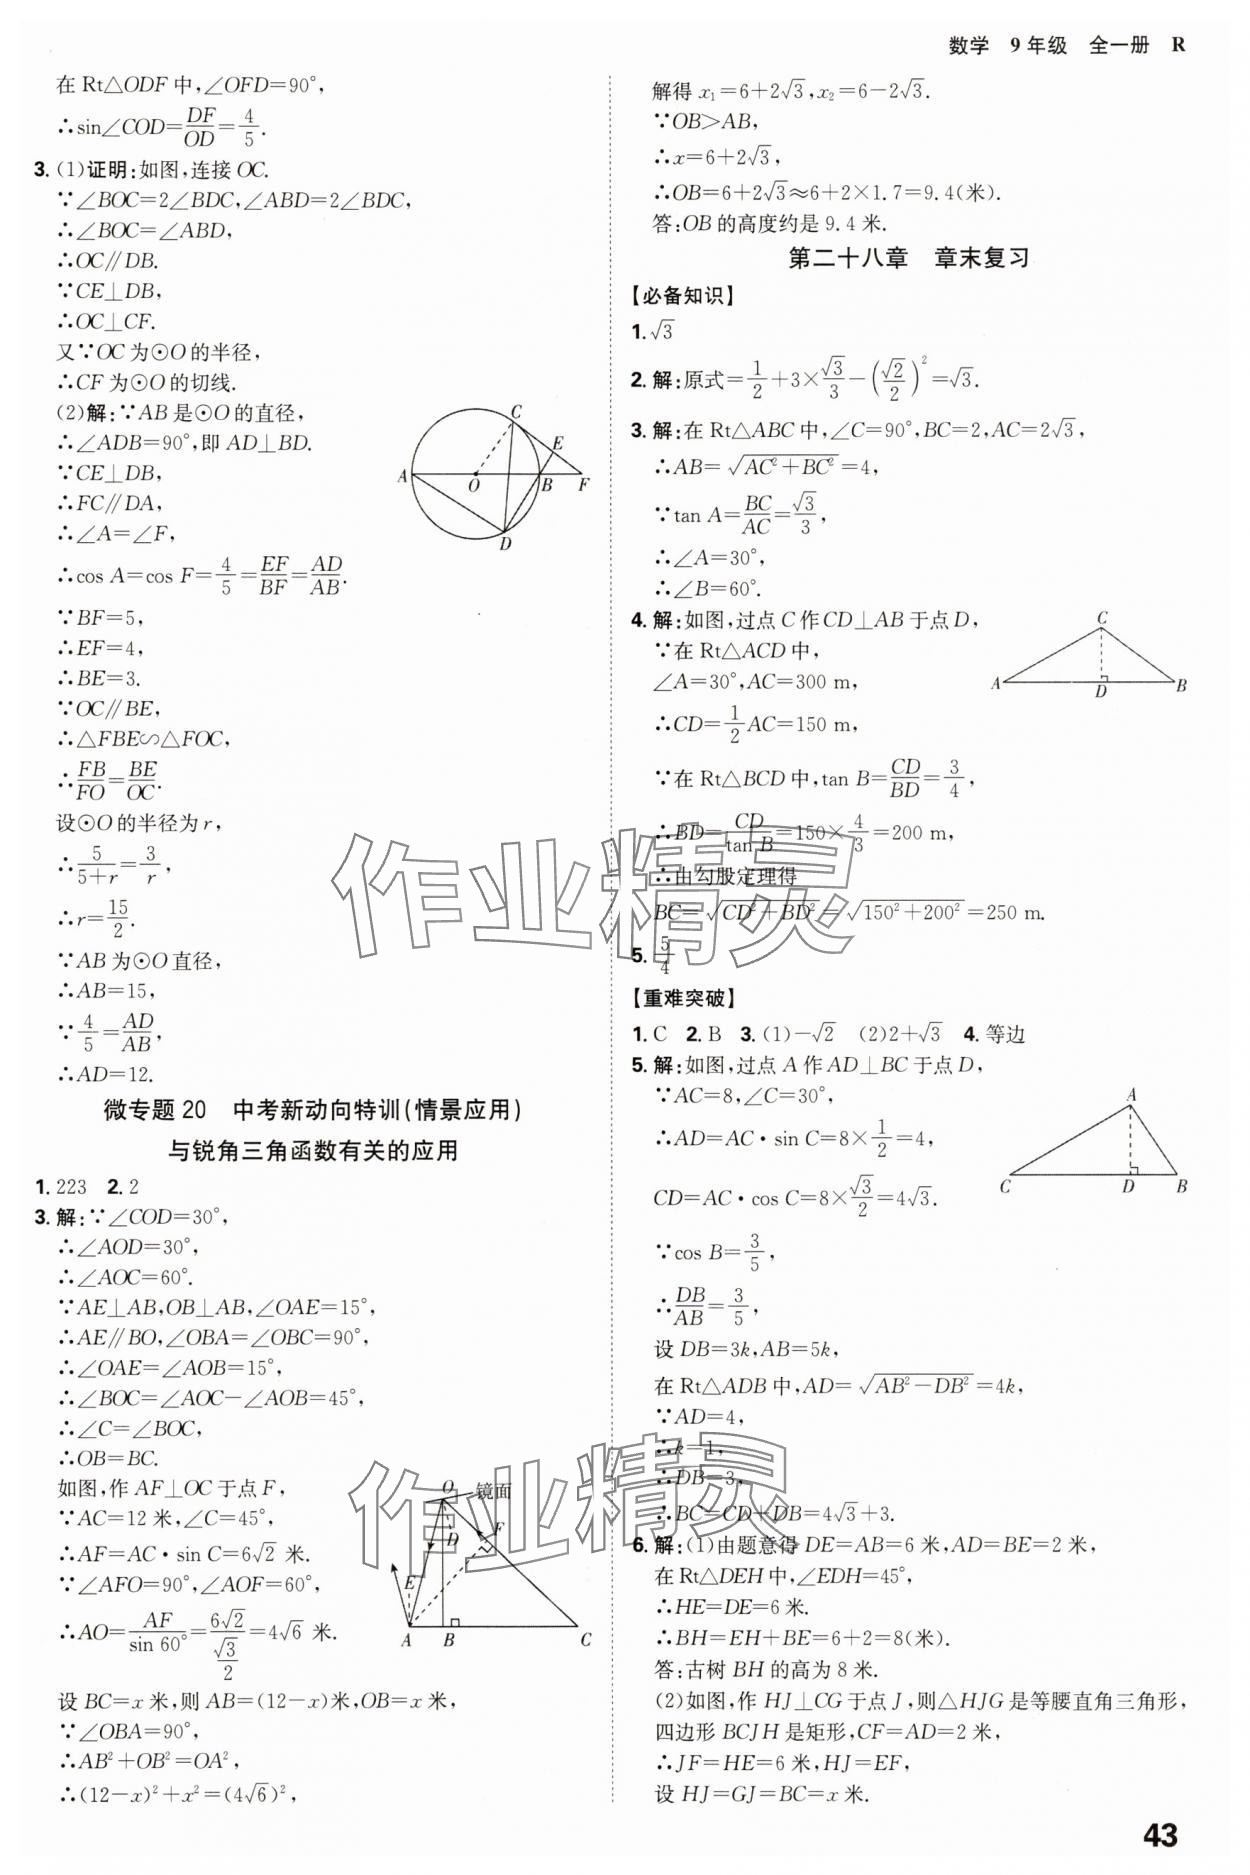 数学 9年级 全一册 R
在 Rt△ODF 中,∠OFD=90°,
∴sin∠COD=DF/OD=4/5.
3. (1)证明:如图,连接 OC.
∵∠BOC=2∠BDC,∠ABD=2∠BDC,
∴∠BOC=∠ABD,
∴OC∥DB.
∵CE⊥DB,
∴OC⊥CF.
又∵OC 为⊙O 的半径,
∴CF 为⊙O 的切线.
(2)解:∵AB 是⊙O 的直径,
∴∠ADB=90°,即 AD⊥BD.
∵CE⊥DB,
∴FC∥DA,
∴∠A=∠F,
∴cos A=cos F=4/5=EF/BF=AD/AB.
∵BF=5,
∴EF=4,
∴BE=3.
∵OC∥BE,
∴△FBE∽△FOC,
∴FB/FO=BE/OC.
设⊙O 的半径为 r,
∴5/(5+r)=3/r,
∴r=15/2.
∵AB 为⊙O 直径,
∴AB=15,
∵4/5=AD/AB,
∴AD=12.
C
E
A
O
B
F
D
微专题 20 中考新动向特训(情景应用)
与锐角三角函数有关的应用
1. 223 2. 2
3. 解:∵∠COD=30°,
∴∠AOD=30°,
∴∠AOC=60°.
∵AE⊥AB,OB⊥AB,∠OAE=15°,
∴AE∥BO,∠OBA=∠OBC=90°,
∴∠OAE=∠AOB=15°,
∴∠BOC=∠AOC-∠AOB=45°,
∴∠C=∠BOC,
∴OB=BC.
如图,作 AF⊥OC 于点 F,
∵AC=12 米,∠C=45°,
∴AF=AC·sin C=6√2 米.
∵∠AFO=90°,∠AOF=60°,
∴AO=AF/sin 60°=6√2/(√3/2)=4√6 米.
设 BC=x 米,则 AB=(12-x)米,OB=x 米,
∵∠OBA=90°,
∴AB²+OB²=OA²,
∴(12-x)²+x²=(4√6)²,
O
镜面
F
D
E
A
B
C
解得 x₁=6+2√3,x₂=6-2√3.
∵OB>AB,
∴x=6+2√3,
∴OB=6+2√3≈6+2×1.7=9.4(米).
答:OB 的高度约是 9.4 米.
第二十八章 章末复习
【必备知识】
1. √3
2. 解:原式=1/2+3×√3/3-(√2/2)²=√3.
3. 解:在 Rt△ABC 中,∠C=90°,BC=2,AC=2√3,
∴AB=√(AC²+BC²)=4,
∵tan A=BC/AC=√3/3,
∴∠A=30°,
∴∠B=60°.
4. 解:如图,过点 C 作 CD⊥AB 于点 D,
∵在 Rt△ACD 中,
∠A=30°,AC=300 m,
∴CD=1/2AC=150 m,
∵在 Rt△BCD 中,tan B=CD/BD=3/4,
∴BD=CD/tan B=150×4/3=200 m,
∴由勾股定理得
BC=√(CD²+BD²)=√(150²+200²)=250 m.
C
A
D
B
5. 5/4
【重难突破】
1. C 2. B 3. (1)-√2 (2)2+√3 4. 等边
5. 解:如图,过点 A 作 AD⊥BC 于点 D,
∵AC=8,∠C=30°,
∴AD=AC·sin C=8×1/2=4,
CD=AC·cos C=8×√3/2=4√3.
∵cos B=3/5,
∴DB/AB=3/5,
设 DB=3k,AB=5k,
在 Rt△ADB 中,AD=√(AB²-DB²)=4k,
∵AD=4,
∴k=1,
∴DB=3,
∴BC=CD+DB=4√3+3.
A
C
D
B
6. 解:(1)由题意得 DE=AB=6 米,AD=BE=2 米,
在 Rt△DEH 中,∠EDH=45°,
∴HE=DE=6 米.
∴BH=EH+BE=6+2=8(米).
答:古树 BH 的高为 8 米.
(2)如图,作 HJ⊥CG 于点 J,则△HJG 是等腰直角三角形,
四边形 BCJH 是矩形,CF=AD=2 米,
∴JF=HE=6 米,HJ=EF,
设 HJ=GJ=BC=x 米.
作业精灵
作业精灵
43